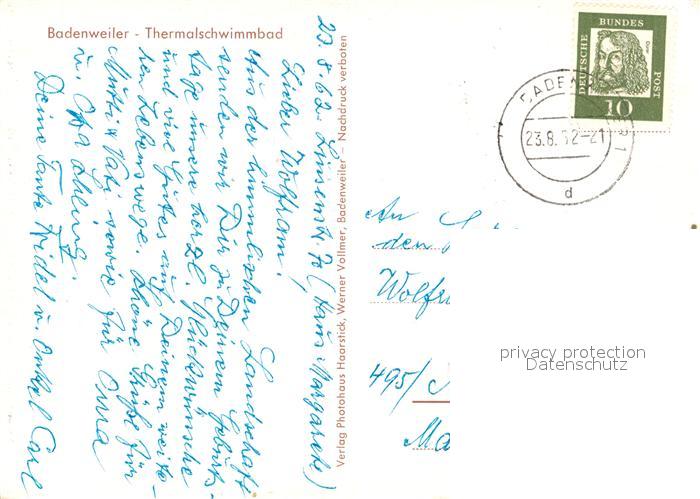 Badenweiler - Thermalschwimmbad
23.8.62 Luisenstr. 7 (Haus Margarete)
Lieber Wolfram.
Aus der himmlischen Landschaft
senden wir Dir zu Deinem Geburts-
tage unsere herzl. Glückwünsche
und viel Gutes auf Deinem weite-
ren Lebenswege. Schöne Grüße für
Mutti u. Vati sowie für Oma
u. Opa
Deine Tante u. Onkel Carl
Verlag Photohaus Haarstick, Werner Vollmer, Badenweiler – Nachdruck verboten
DEUTSCHE BUNDES POST
Dürer
10
23.8.62-21
d
An
den
Wolfr
495/
Ma
privacy protection
Datenschutz